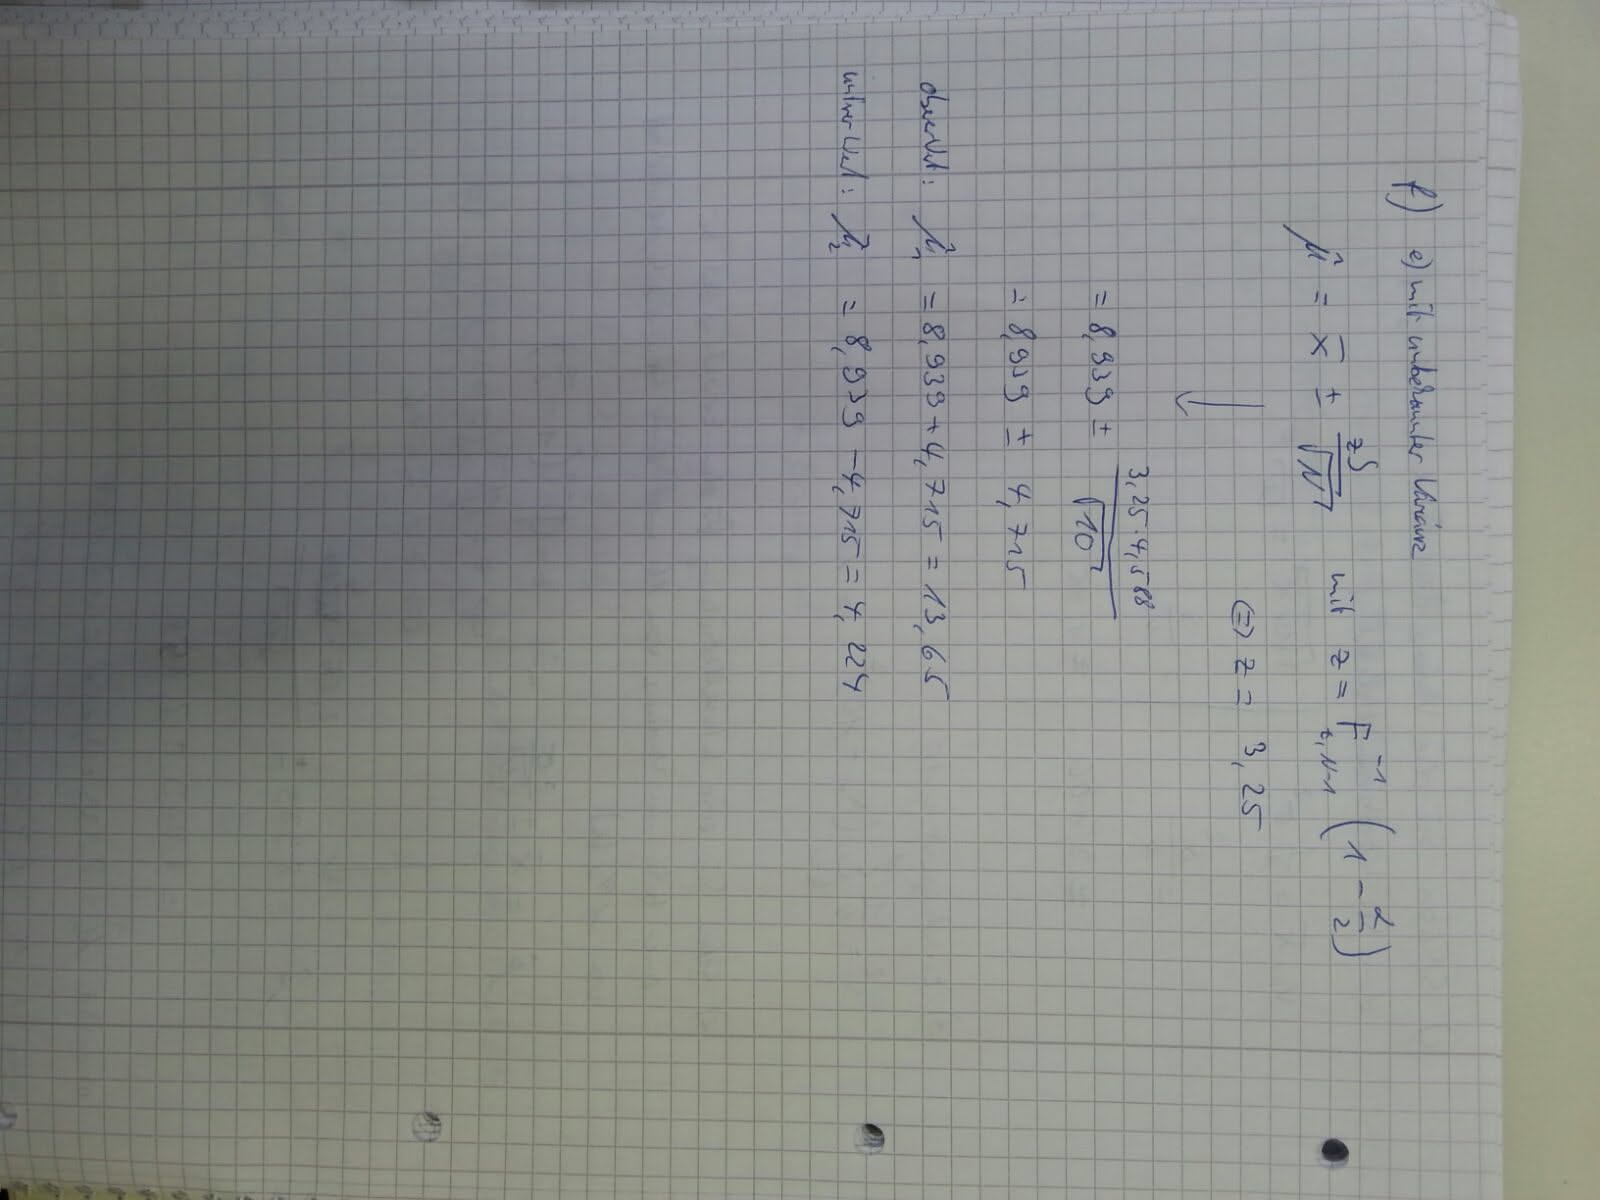 f) e) mit unbekannter Varianz
μ̂ = x̄ ± zS/√N mit z = F⁻¹ t, N-1 (1 - α/2)
⇔ z = 3,25
= 8,939 ± 3,25·4,588/√10
= 8,939 ± 4,715
oberer Wert: μ̂₁ = 8,939 + 4,715 = 13,65
unterer Wert: μ̂₂ = 8,939 - 4,715 = 4,224